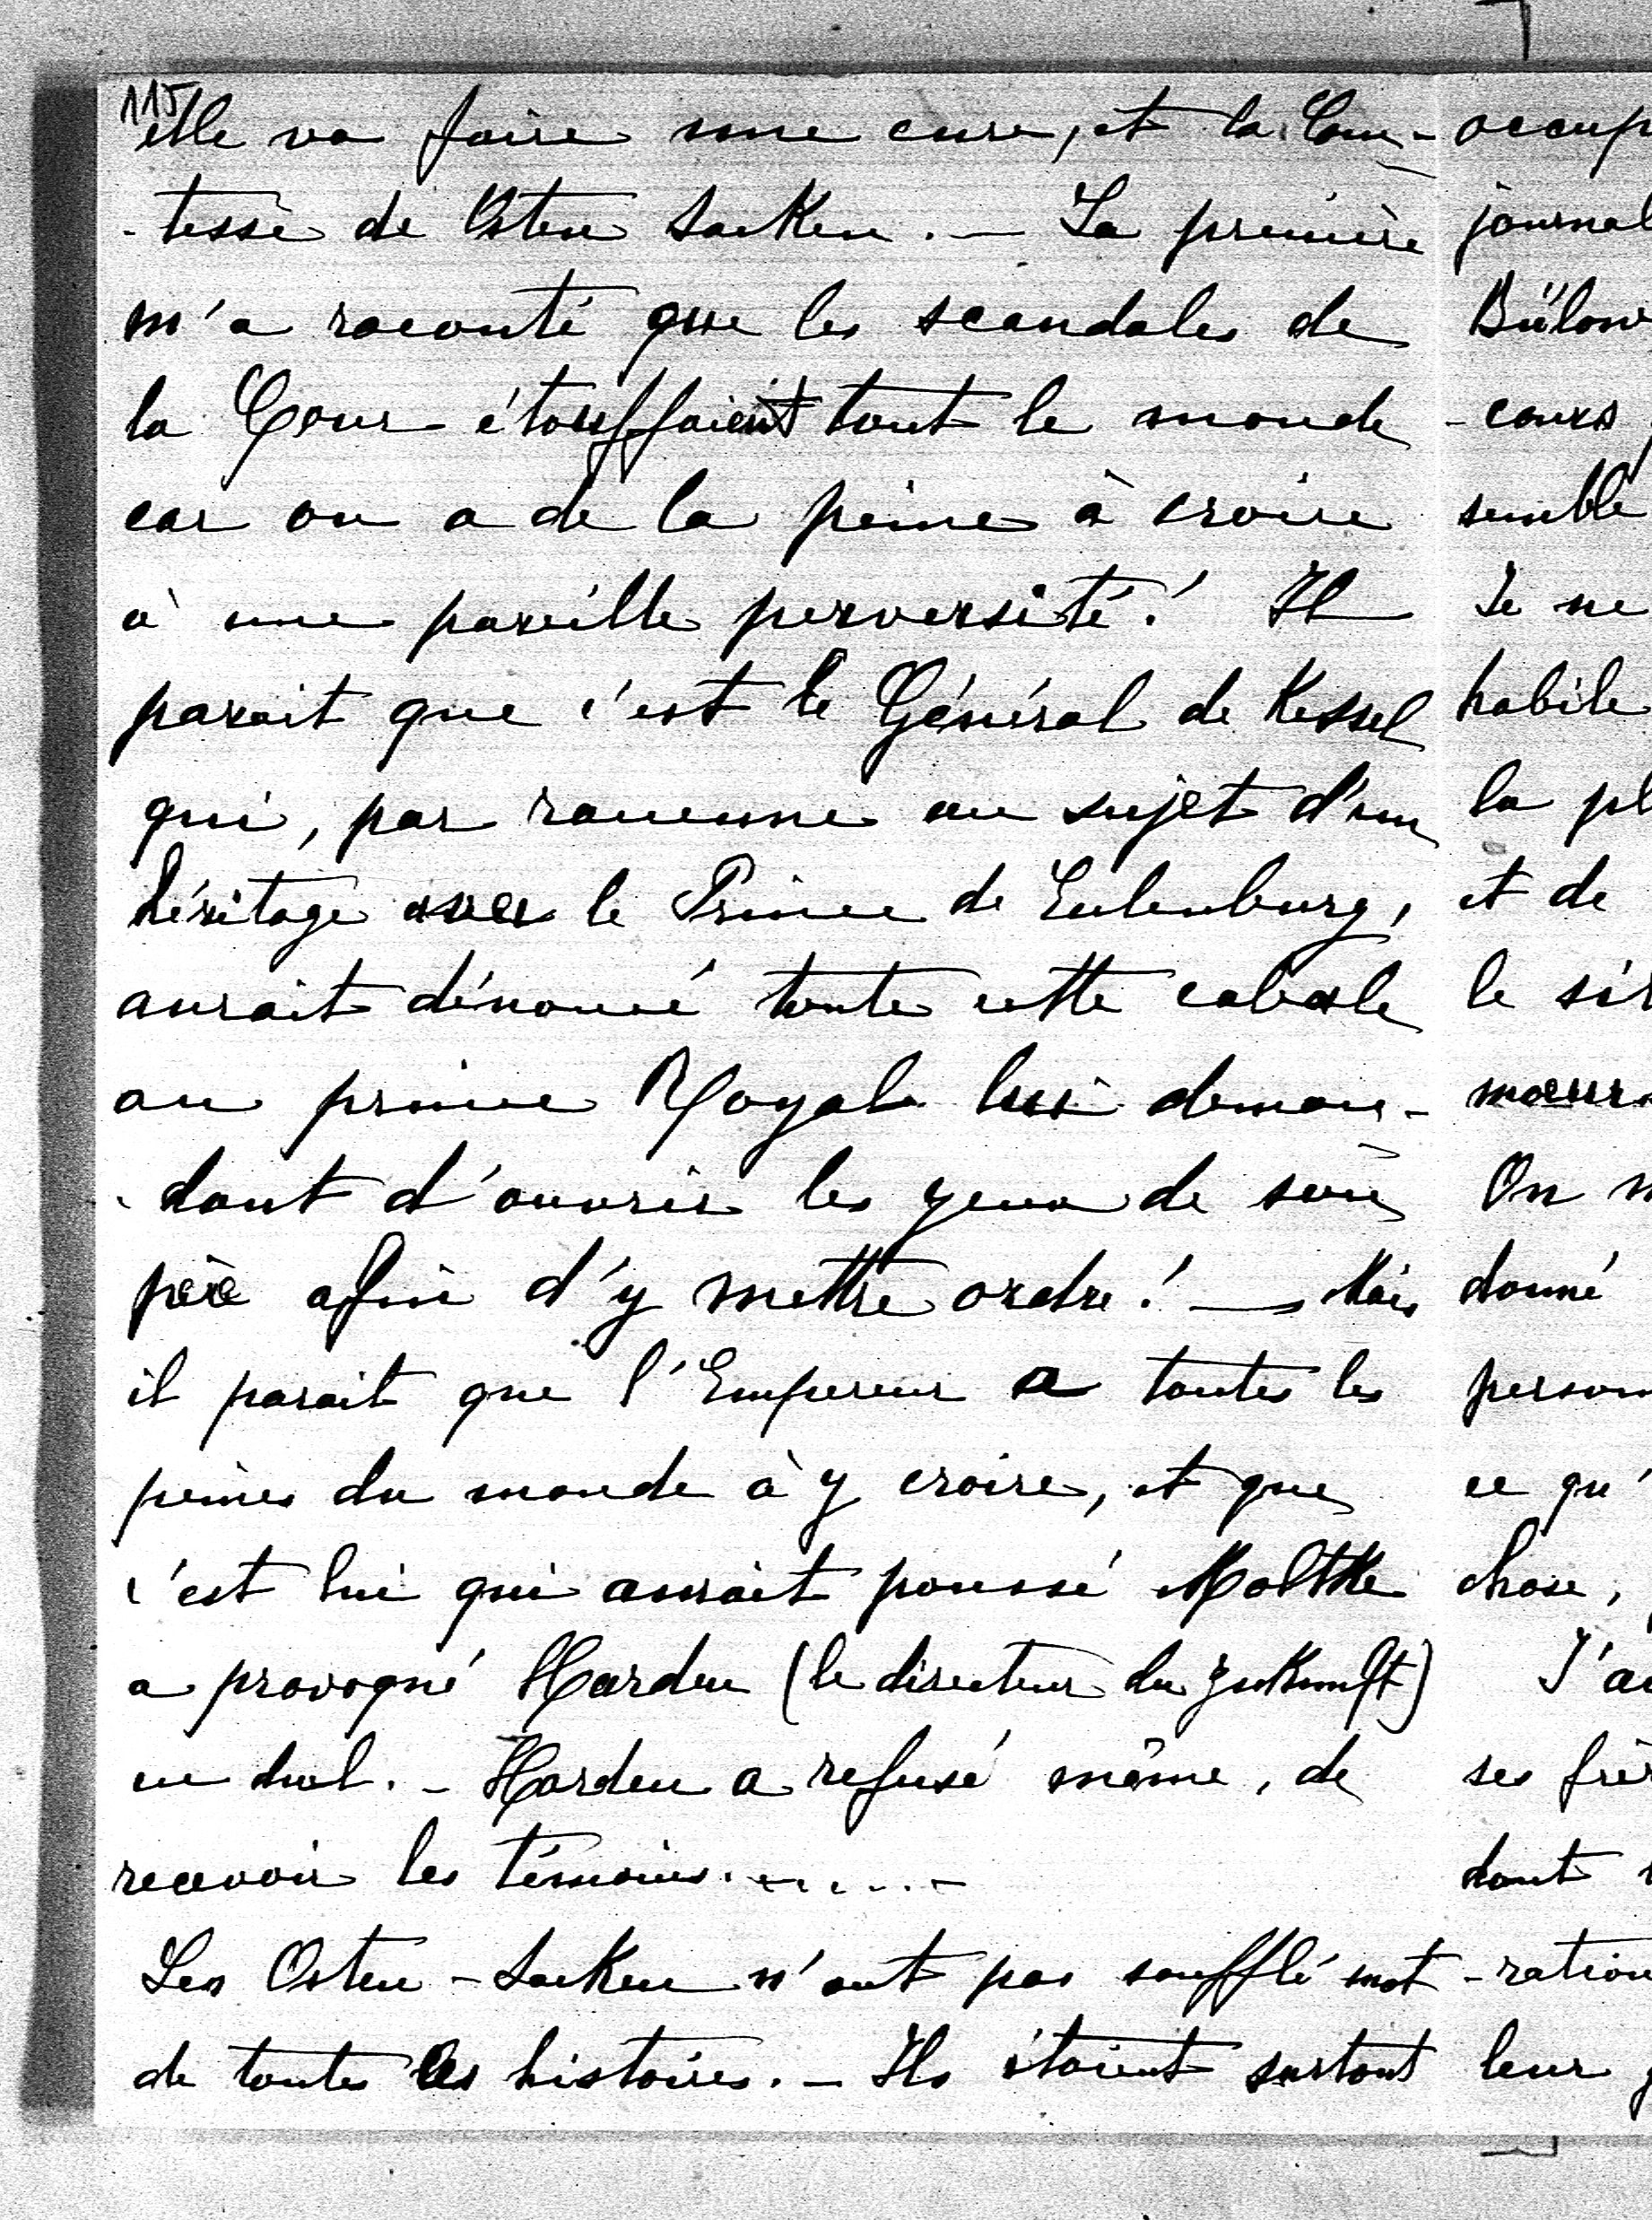 115
elle va faire une cure, et la Com-
-tesse de Osten Sacken. — La première
m'a raconté que les scandales de
la Cour étouffaient tout le monde
car on a de la peine à croire
à une pareille perversité! Il
parait que c'est le Général de Kessel
qui, par rancune au sujet d'un
héritage avec le Prince de Eulenburg,
aurait dénoncé toute cette cabale
au prince Royal lui deman-
-dant d'ouvrir les yeux de son
père afin d'y mettre ordre! — Mais
il parait que l'Empereur a toutes les
peines du monde à y croire, et que
c'est lui qui aurait poussé Moltke
a provoqué Harden (le directeur du Zukunft)
en duel. - Harden a refusé même, de
recevoir les témoins.......
Les Osten-Sacken n'ont pas soufflé mot
de toutes les histoires. - Ils étaient surtout
occup
journal
Bülow
-cours
semble
Je ne
habile
la pl
et de
le sil
moeurs
On m
donné
person
ce qu'
chose,
J'ai
ses frèr
dont
-ration
leur